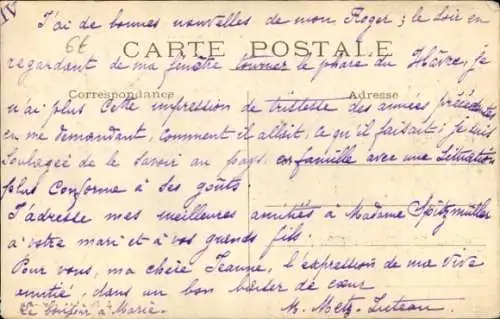 IV
J'ai de bonnes nouvelles de mon Roger ; le soir en
6t
CARTE POSTALE
regardant de ma fenêtre tourner le phare du Hâvre, je
Correspondance
Adresse
n'ai plus cette impression de tristesse des années précédentes
en me demandant, comment il allait, ce qu'il faisait ; je suis
soulagée de le savoir au pays, en famille avec une situation
plus conforme à ses goûts.
J'adresse mes meilleures amitiés à Madame Spitzmüller
à votre mari et à vos grands fils.
Pour vous, ma chère Jeanne, l'expression de ma vive
amitié, dans un bon baiser de cœur
Le bonjour à Marie.
M. Metz-Luteau